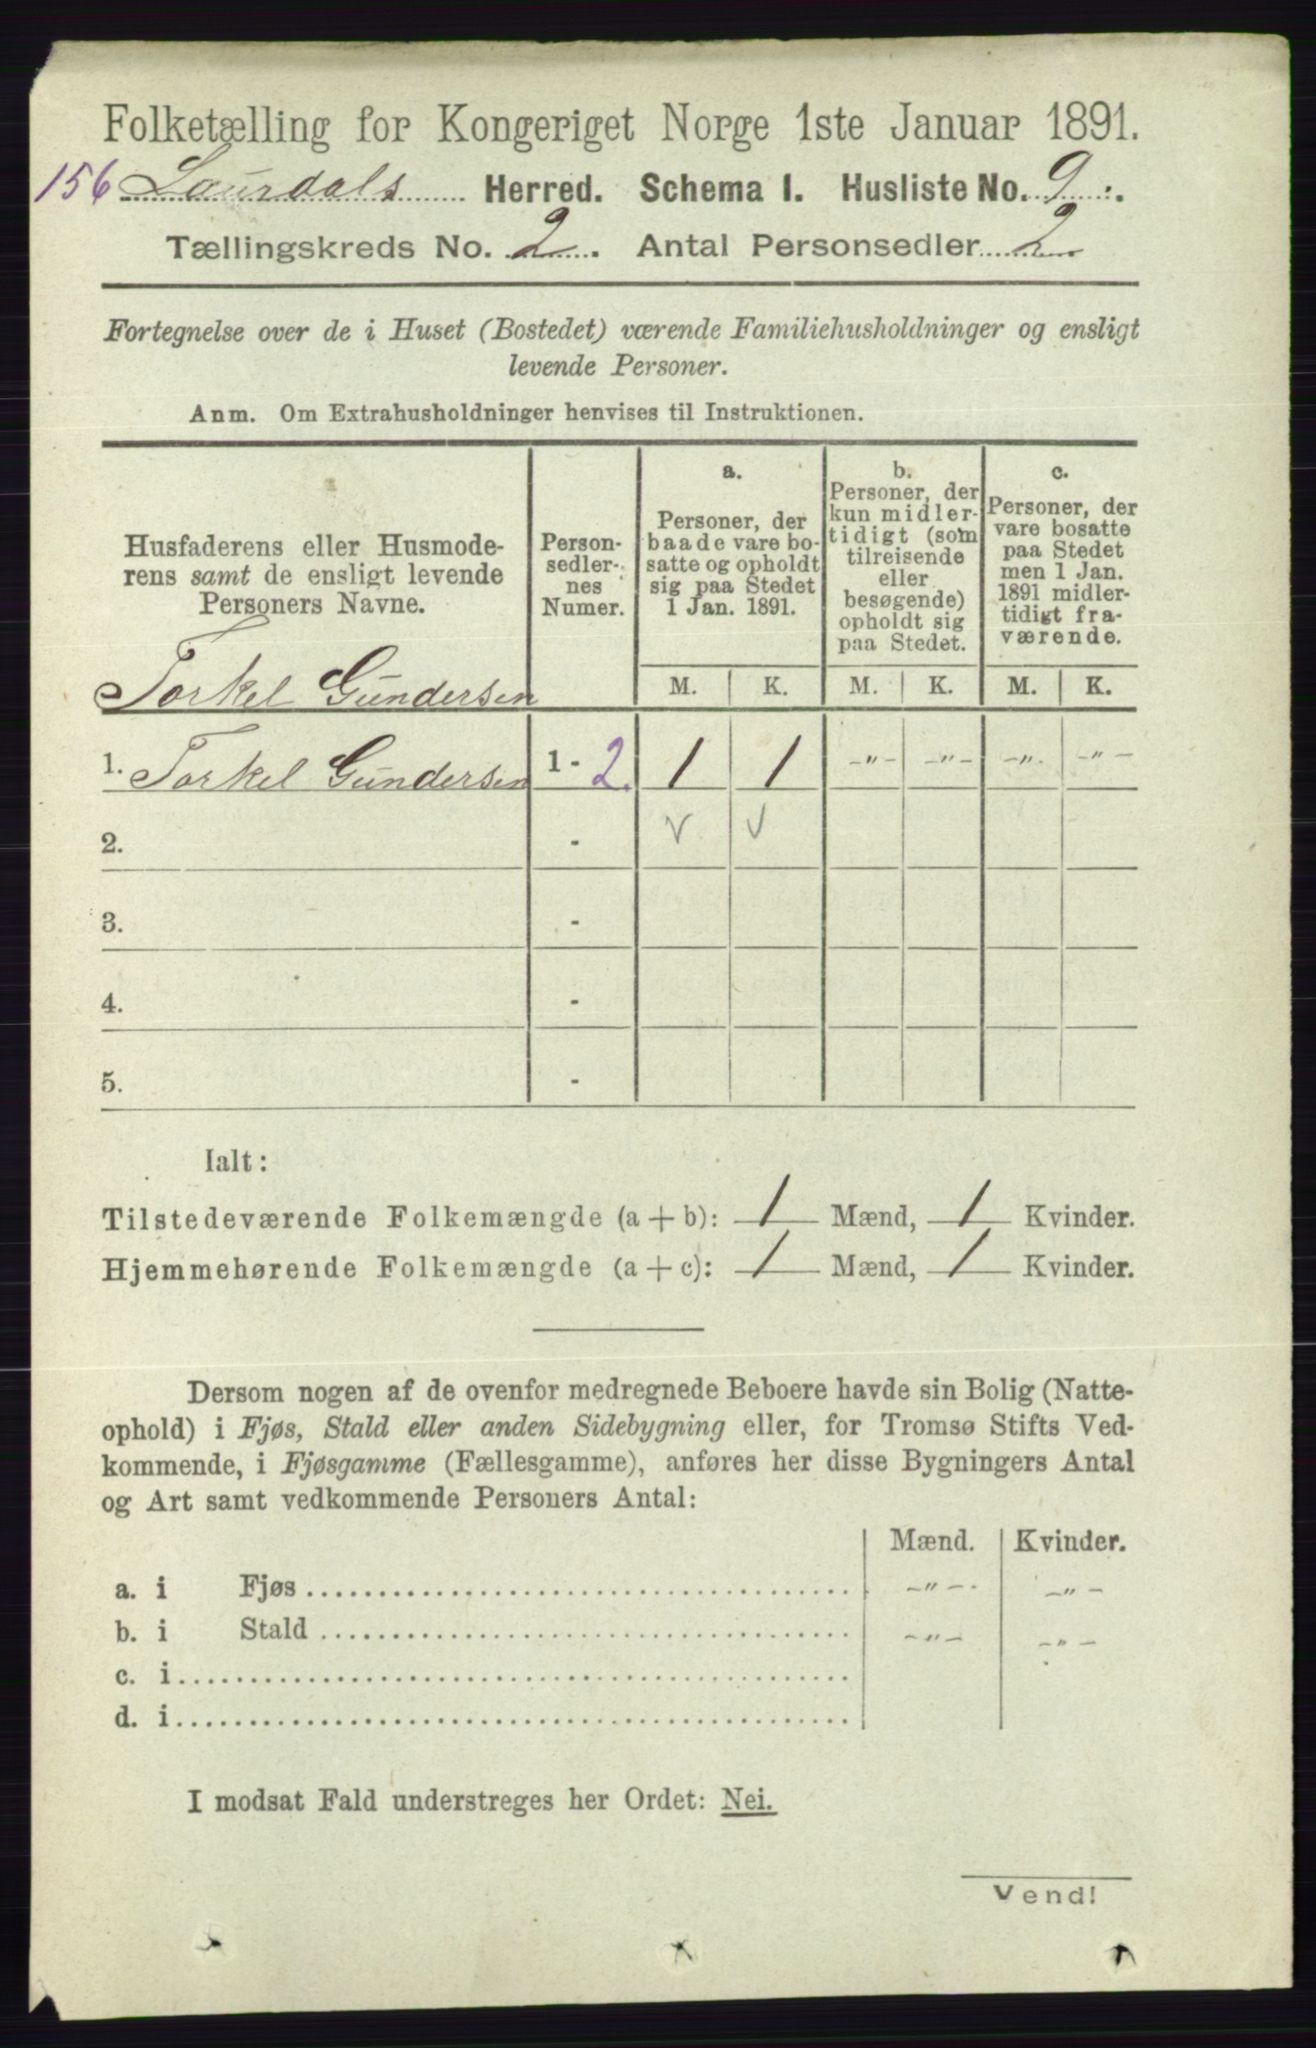 Folketælling for Kongeriget Norge 1ste Januar 1891.
156 Laurdals Herred. Schema I. Husliste No. 9.
Tællingskreds No. 2. Antal Personsedler 2
Fortegnelse over de i Huset (Bostedet) værende Familiehusholdninger og ensligt
levende Personer.
Anm. Om Extrahusholdninger henvises til Instruktionen.
Husfaderens eller Husmode-
rens samt de ensligt levende
Personers Navne.
Torkel Gundersen
Person-
sedler-
nes
Numer.
a.
Personer, der
baade vare bo-
satte og opholdt
sig paa Stedet
1 Jan. 1891.
b.
Personer, der
kun midler-
tidigt (som
tilreisende
eller
besøgende)
opholdt sig
paa Stedet.
c.
Personer, der
vare bosatte
paa Stedet
men 1 Jan.
1891 midler-
tidigt fra-
værende.
M. K. M. K. M. K.
1. Torkel Gundersen 1 - 2. 1 1 -"- -"- -"- -"-
2. - v v
3. -
4. -
5. -
Ialt:
Tilstedeværende Folkemængde (a + b): 1 Mænd, 1 Kvinder.
Hjemmehørende Folkemængde (a + c): 1 Mænd, 1 Kvinder.
Dersom nogen af de ovenfor medregnede Beboere havde sin Bolig (Natte-
ophold) i Fjøs, Stald eller anden Sidebygning eller, for Tromsø Stifts Ved-
kommende, i Fjøsgamme (Fællesgamme), anføres her disse Bygningers Antal
og Art samt vedkommende Personers Antal:
Mænd. Kvinder.
a. i Fjøs -"- -"-
b. i Stald -"- -"-
c. i
d. i
I modsat Fald understreges her Ordet: Nei.
Vend!